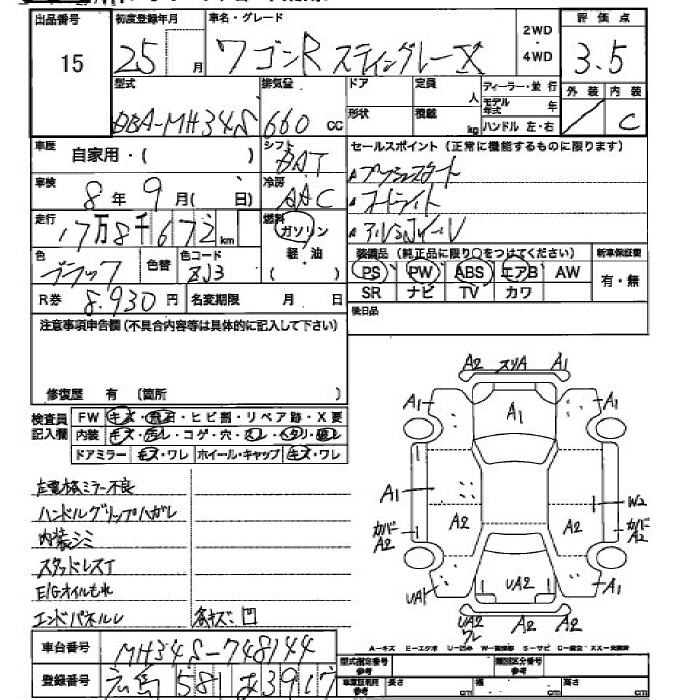 出品番号 初度登録年月 車名・グレード 2WD・4WD 評価点
15 25 月 ワゴンR スティングレーX 3.5
型式 排気量 ドア 定員 人 ディーラー・並行 外装 内装
DBA-MH34S 660 cc 形状 積載 kg モデル年式 年 ハンドル 左・右 C
車歴 自家用・( ) シフト DAT セールスポイント(正常に機能するものに限ります)
車検 8年 9月( 日) 冷房 AAC プッシュスタート
オートライト
走行 17万8千672 km 燃料 ガソリン 軽・油 ( ) アルミホイール
色 ブラック 色替 色コード ZJ3 装備品(純正品に限り○をつけてください) 新車保証書
PS PW ABS エアB AW 有・無
R券 8.930円 名変期限 月 日 SR ナビ TV カワ
注意事項申告欄(不具合内容等は具体的に記入して下さい) 後日品
修復歴 有 (箇所 )
検査員記入欄 FW キズ・飛石・ヒビ割・リペア跡・X要
内装 キズ・汚レ・コゲ・穴・スレ・ヘタリ・破レ
ドアミラー キズ・ワレ ホイール・キャップ キズ・ワレ
A2 スリA A1
A1 A1 A1
A1 W2
カバーA2 A2 A2 カバーA2
UA1 UA2 A1
UA2 ワレ A2 A2
左電格ミラー不良
ハンドルグリップハガレ
内装シミ
スタッドレスT
E/Gオイルもれ
エンドパネルU 各キズ・凹
A-キズ E-エクボ
車台番号 MH34S-748144
登録番号 広島 581 あ 3917
型式指定番号 参考 類別区分番号 参考
参考 長さ cm 幅 cm 高さ cm